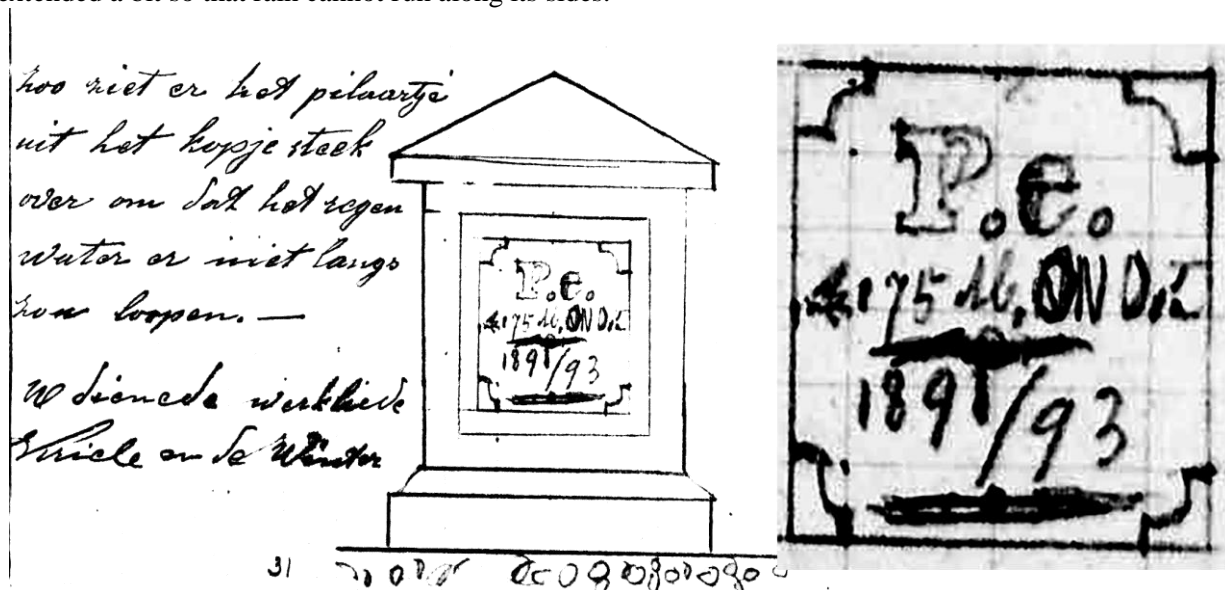 extended a bit so that rain cannot run along its sides.
zoo ziet er het pilaartje
uit het kopje steek
over om dat het regen
water er niet langs
zou loopen. —
UE dienende werkliede
en de Winter
P.e.
175 M. ONDER
1891/93
31
P.e.
175 M. ONDER
1891/93